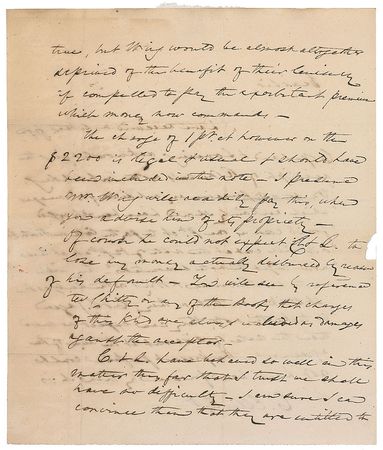 true, but Wing would be almost altogether
deprived of the benefit of their leniency
if compelled to pay the exorbitant premium
which money now commands —
The charge of 1 pr ct however on the
$2200 is legal & usual & should have
been included in the note — I presume
Mr. Wing will readily pay this, when
you advise him of its propriety —
Of course he could not expect C & L. to
lose any money actually disbursed by reason
of his default — You will see by reference
to Chitty or any of the books, that charges
of this kind are always included as damages
against the acceptor —
C. & L. have behaved so well in this
matter thus far that I trust we shall
have no difficulty — I am sure I can
convince them that they are entitled to